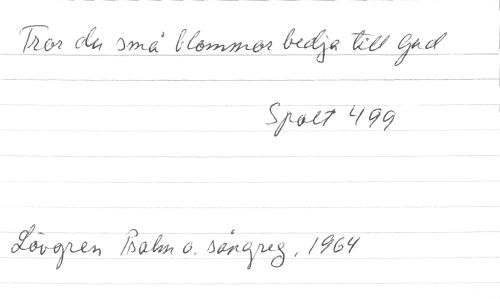 Tror du små blommor bedja till Gud
Spalt 499
Lövgren Psalm o. sångreg. 1964